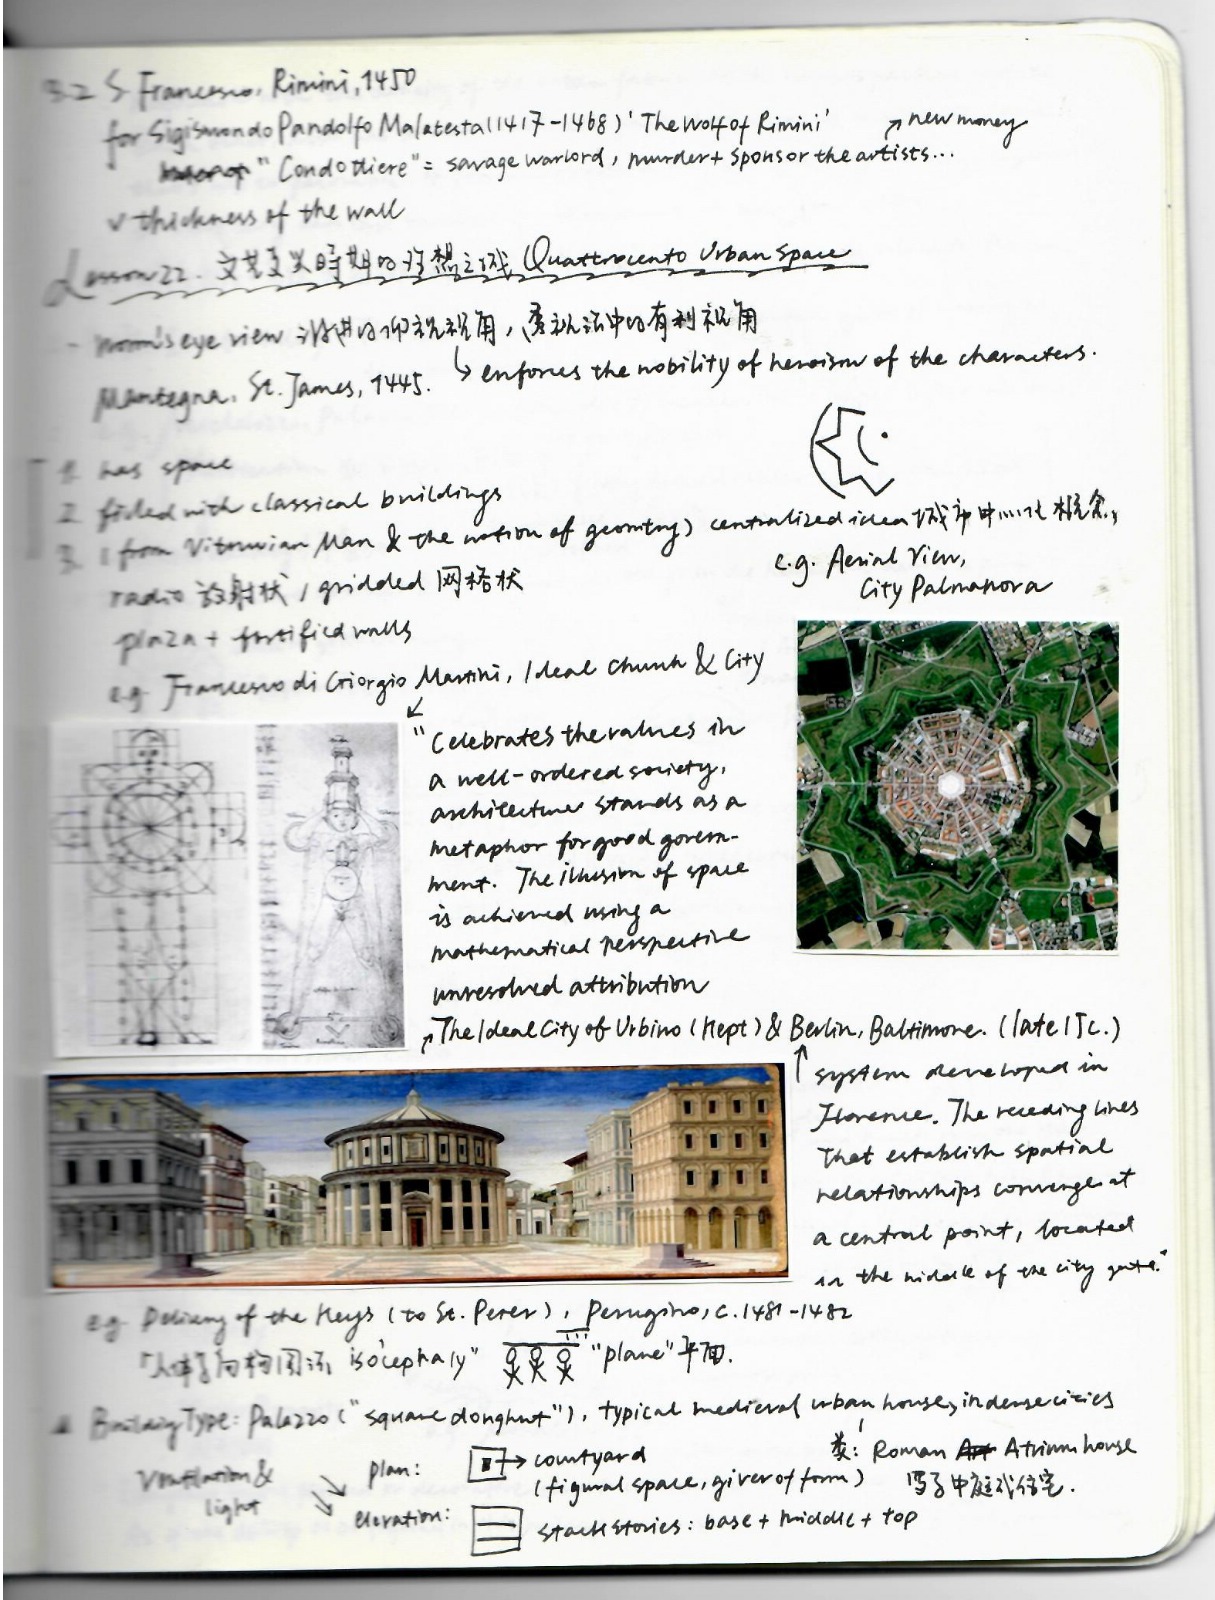 3.2 S. Francesco, Rimini, 1450
for Sigismondo Pandolfo Malatesta (1417-1468) 'The Wolf of Rimini'
↗ new money
"Condottiere" = savage warlord, murder + sponsor the artists...
✓ thickness of the wall
Lesson 22. 文艺复兴时期的理想之城 Quattrocento Urban Space
- worm's eye view 仰视视角, 透视法中的有利视角
↳ enforces the nobility of heroism of the characters.
Mantegna, St. James, 1445.
1. has space
2. filled with classical buildings
3. (from Vitruvian Man & the notion of geometry) centralized idea 城市中心化概念,
e.g. Aerial View,
City Palmanova
radio 放射状 / gridded 网格状
plaza + fortified walls
e.g. Francesco di Giorgio Martini, Ideal Church & City
"Celebrates the values in
a well-ordered society,
architecture stands as a
metaphor for good govern-
ment. The illusion of space
is achieved using a
mathematical perspective
unresolved attribution
↗ The Ideal City of Urbino (Kept) & Berlin, Baltimore. (late 15c.)
↑ system developed in
Florence. The receding lines
that establish spatial
relationships converge at
a central point, located
in the middle of the city gate."
e.g. Delivery of the Keys (to St. Perer), Perugino, c. 1481-1482
isocephaly" "plane" 平面.
Building Type: Palazzo ("square donghut"), typical medieval urban house, in dense cities
类: Roman Atrium house
中庭式住宅.
Ventilation &
light
plan: → courtyard
(figural space, giver of form)
elevation: stack stories: base + middle + top